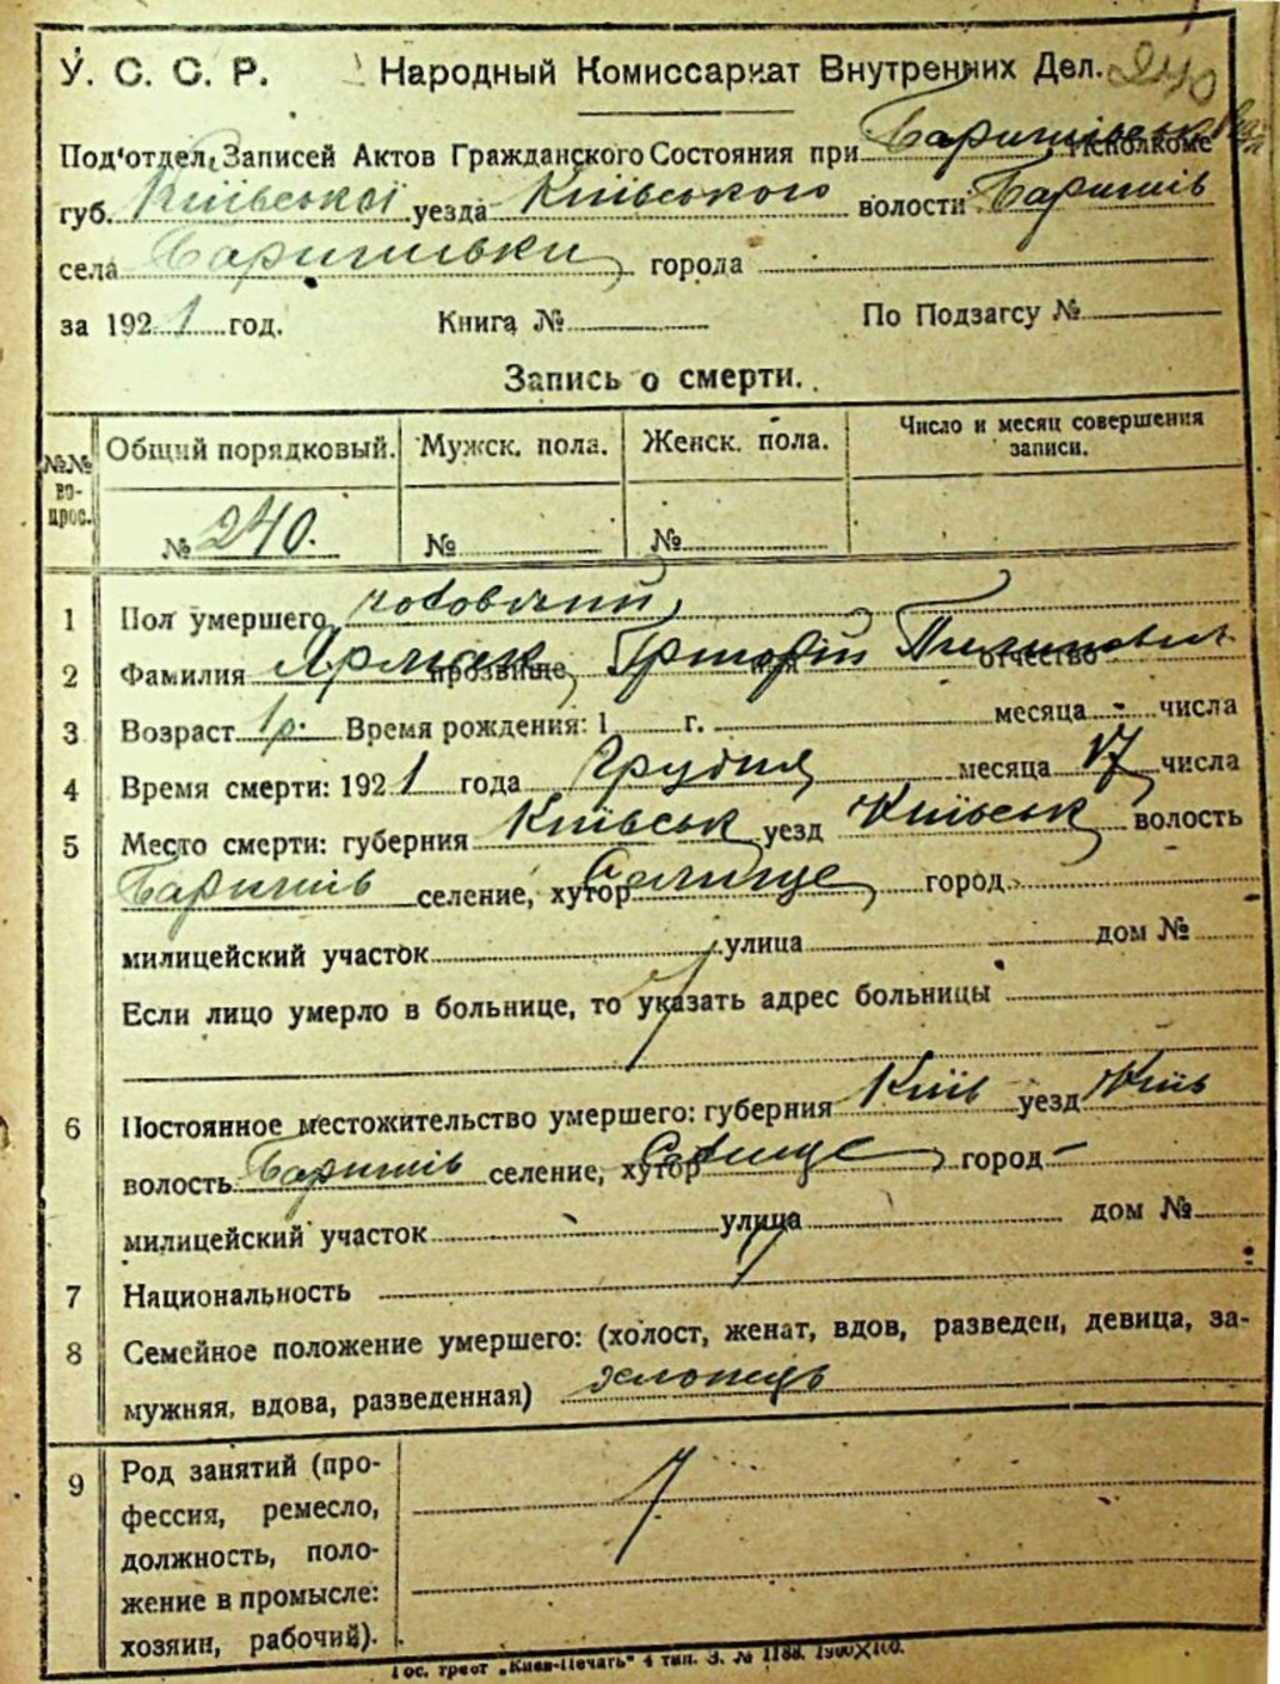 У. С. С. Р. Народный Комиссариат Внутренних Дел. 240
Под'отдел Записей Актов Гражданского Состояния при Баришівськ Исполкоме
губ. Київської уезда Київського волости Баришів
села Баришівки города
за 1921 год. Книга № По Подзагсу №
Запись о смерти.
№№ вопрос. Общий порядковый. Мужск. пола. Женск. пола. Число и месяц совершения записи.
№ 240. № №
1 Пол умершего чоловічий
2 Фамилия Ярмак прозвище Григорій имя Пилипович отчество
3 Возраст 1 р. Время рождения: 1 г. месяца - числа
4 Время смерти: 1921 года Грудня месяца 17 числа
5 Место смерти: губерния Київськ уезд Київськ волость
Баришів селение, хутор Селище город
милицейский участок улица дом №
Если лицо умерло в больнице, то указать адрес больницы
6 Постоянное местожительство умершего: губерния Київ уезд Київ
волость Баришів селение, хутор Селище город -
милицейский участок улица дом №
7 Национальность
8 Семейное положение умершего: (холост, женат, вдов, разведен, девица, за-
мужняя, вдова, разведенная) хлопець
9 Род занятий (про-
фессия, ремесло,
должность, поло-
жение в промысле:
хозяин, рабочий).
Гос. трест „Киев-Печать" 4 тип. З. № 1188. 1900X100.